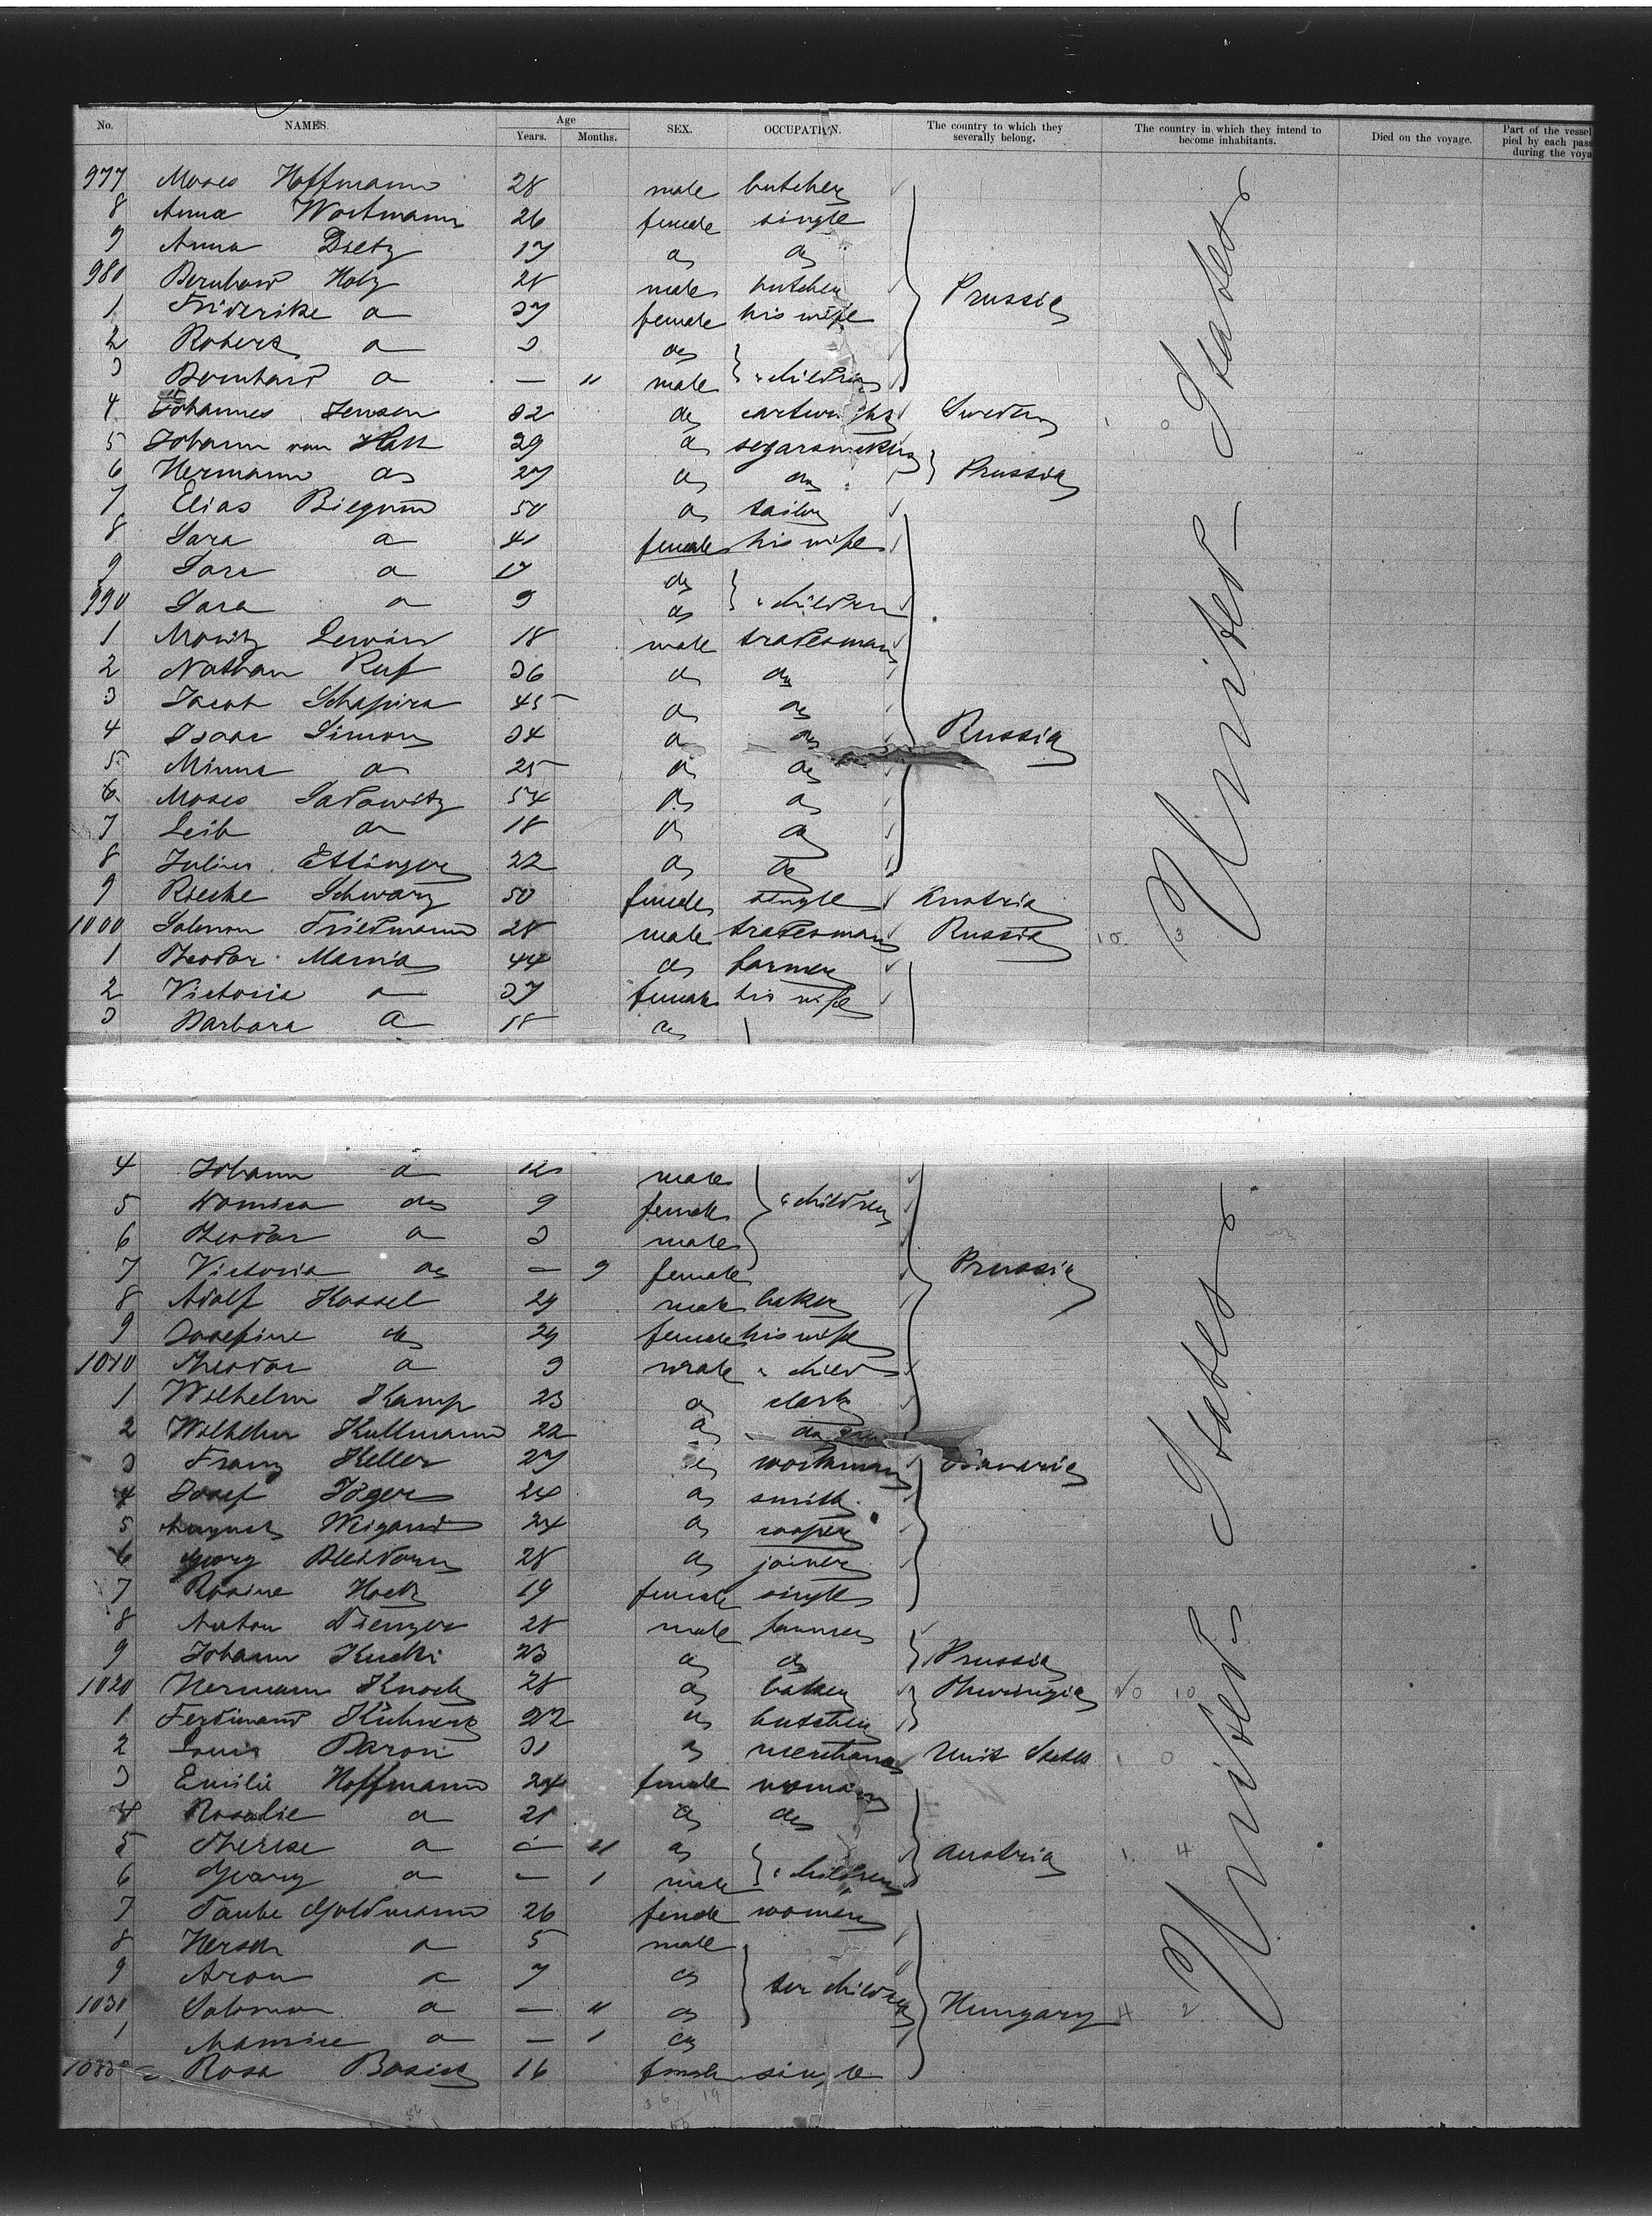 No. NAMES. Age Years. Months. SEX. OCCUPATION. The country to which they severally belong. The country in which they intend to become inhabitants. Died on the voyage. Part of the vessel pied by each pas during the voya
977 Moses Hoffmann 28 male butcher
8 Anna Wortmann 26 female single
9 Anna Dietz 17 do do
980 Bernhard Holz 28 male butcher Prussia
1 Friderike do 27 female his wife
2 Robert do 3 do
3 Bernhard do — 11 male children
4 Johannes Jensen 32 do cartwright Sweden
5 Johann van Hall 29 do segarsmaker
6 Hermann do 27 do do Prussia
7 Elias Biegund 50 do tailor
8 Sara do 41 female his wife
9 Sara do 17 do
990 Sara do 9 do children
1 Moritz Lewin 18 male tradesman
2 Nathan Ruf 36 do do
3 Jacob Schapira 45 do do
4 Isaac Simon 34 do do Russia
5 Minna do 25 do do
6 Moses Sadowitz 54 do do
7 Leib do 18 do do
8 Julius Ettinger 22 do do
9 Schwarz 50 female single Austria
1000 Salomon Friedmann 28 male tradesman Russia 15 3
1 Theodor 44 do farmer
2 Victoria do 37 female his wife
3 Barbara do 18 do
4 Johann do 12 male
5 do 9 female children
6 Theodor do 3 male
7 Victoria do — 9 female Prussia
8 Adolf Kossel 29 male baker
9 Josefine do 29 female his wife
1010 Theodor do 3 male child
1 Wilhelm Kamp 23 do clerk
2 Wilhelm Kullmann 22 do do
3 Franz Keller 27 do workman Bavaria
4 Josef Jöger 24 do smith
5 August Weigand 24 do cooper
6 Georg 28 do joiner
7 Rosine Hock 19 female single
8 Anton Dienger 28 male farmer
9 Johann Kucki 23 do do Prussia
1020 Hermann Knoch 28 do baker Thuringia 20 10
1 Ferdinand Kühnert 22 do butcher
2 Louis Baron 31 do merchant Unit States 1 0
3 Emilie Hoffmann 24 female woman
4 Rosalie do 21 do do
5 Therese do — 11 do Austria 1 4
6 Georg do — 1 male children
7 Taube Goldmann 26 female woman
8 Hersch do 5 male
9 Aron do 7 do her children
1030 Salomon do — 11 do Hungary 4 2
1 do — 1 do
1032 Rosa 16 female single
United States
United States